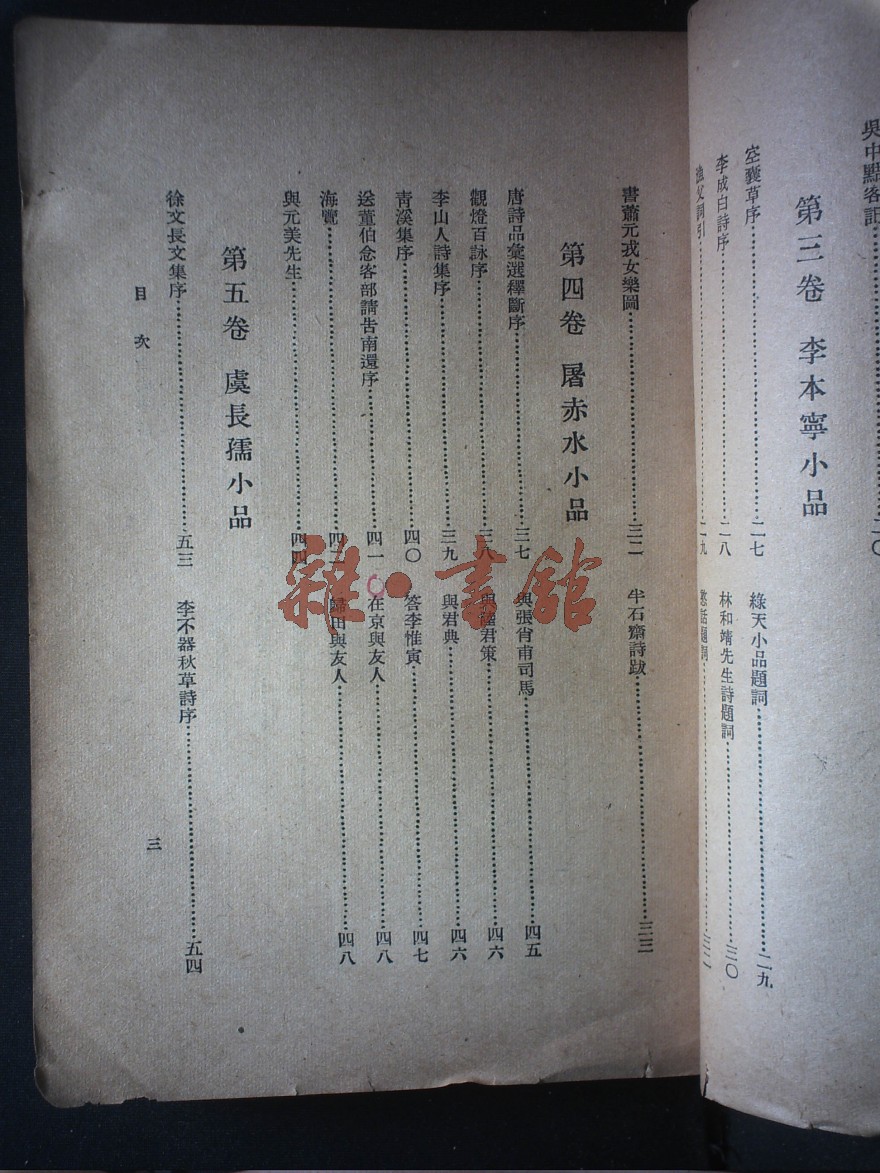 吳中點客記……二〇
第三卷　李本寧小品
空襲草序……二七
綠天小品題詞……二九
李成白詩序……二八
林和靖先生詩題詞……三〇
漁父詞引……二九
題詞……三二
書蕭元戎女樂圖……三二
半石齋詩跋……三三
第四卷　屠赤水小品
唐詩品彙選釋斷序……三七
與張肖甫司馬……四五
觀燈百詠序……三八
與君策……四六
李山人詩集序……三九
與君典……四六
青溪集序……四〇
答李惟寅……四七
送董伯念客部請告南還序……四一
在京與友人……四八
海覽……四二
歸田與友人……四八
與元美先生……四四
第五卷　虞長孺小品
徐文長文集序……五三
李不器秋草詩序……五四
目次
三
雜·書館